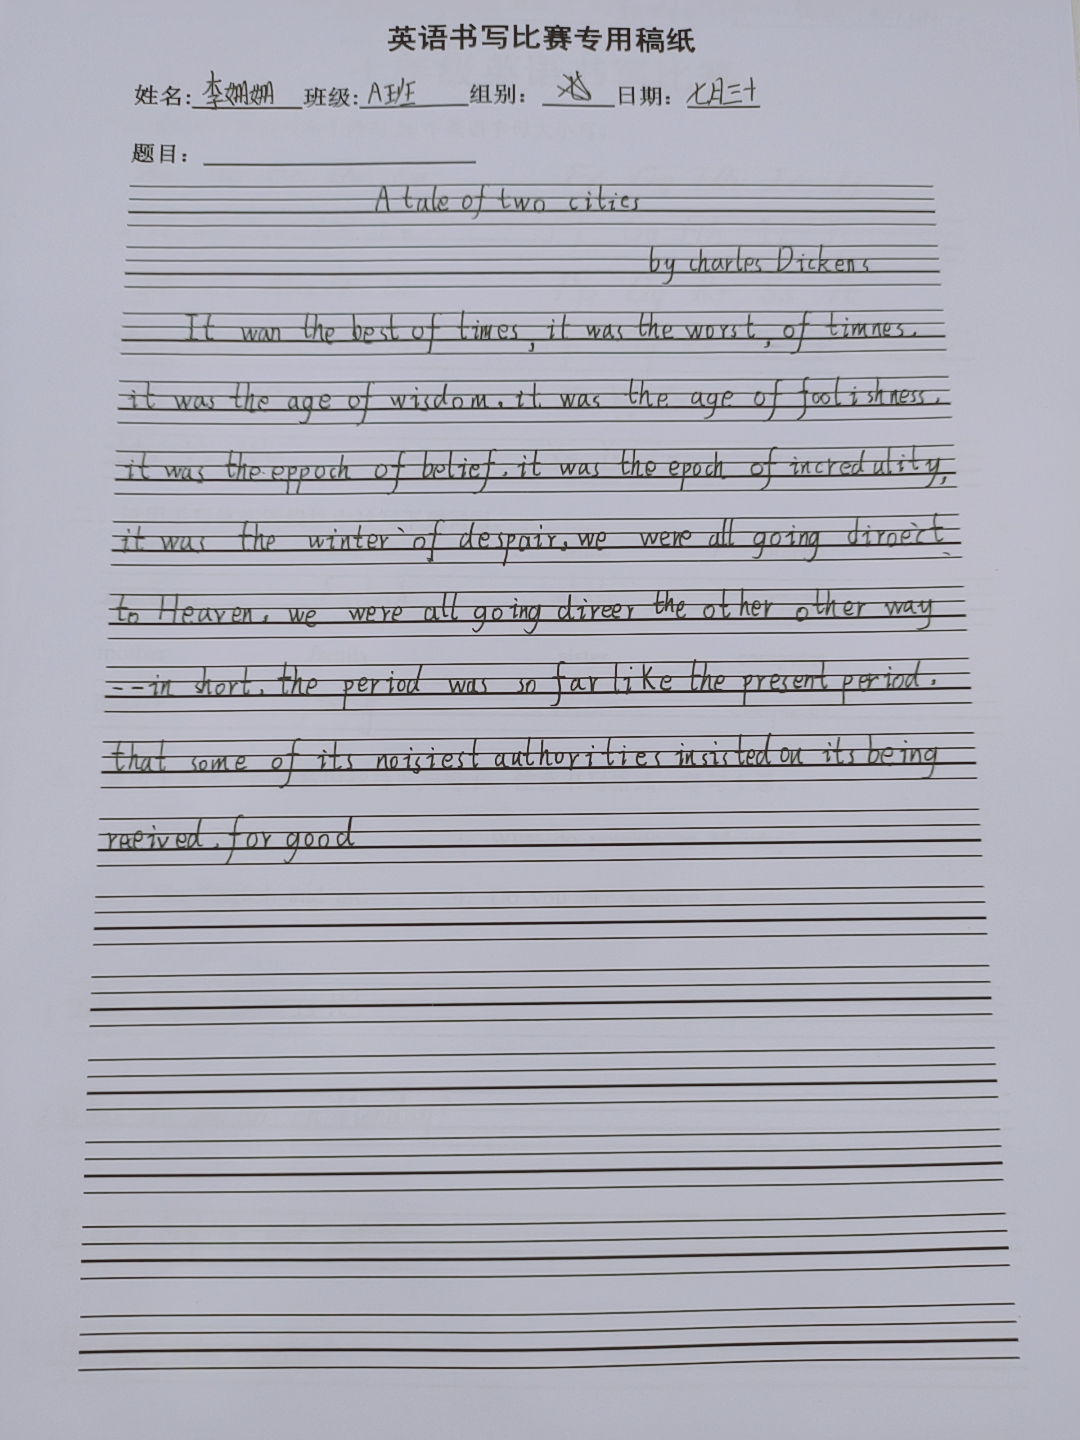 英语书写比赛专用稿纸
姓名: 李姗姗 班级: A班 组别: 日期: 七月三十
题目:
A tale of two cities
by charles Dickens
It wan the best of times, it was the worst, of timnes.
it was the age of wisdom. it was the age of foolishness.
it was the eppoch of belief. it was the epoch of incredulity,
it was the winter of despair. we were all going diroect
to Heaven. we were all going direer the other other way
--in short. the period was so far like the present period.
that some of its noisiest authorities insisted on its being
raeived. for good